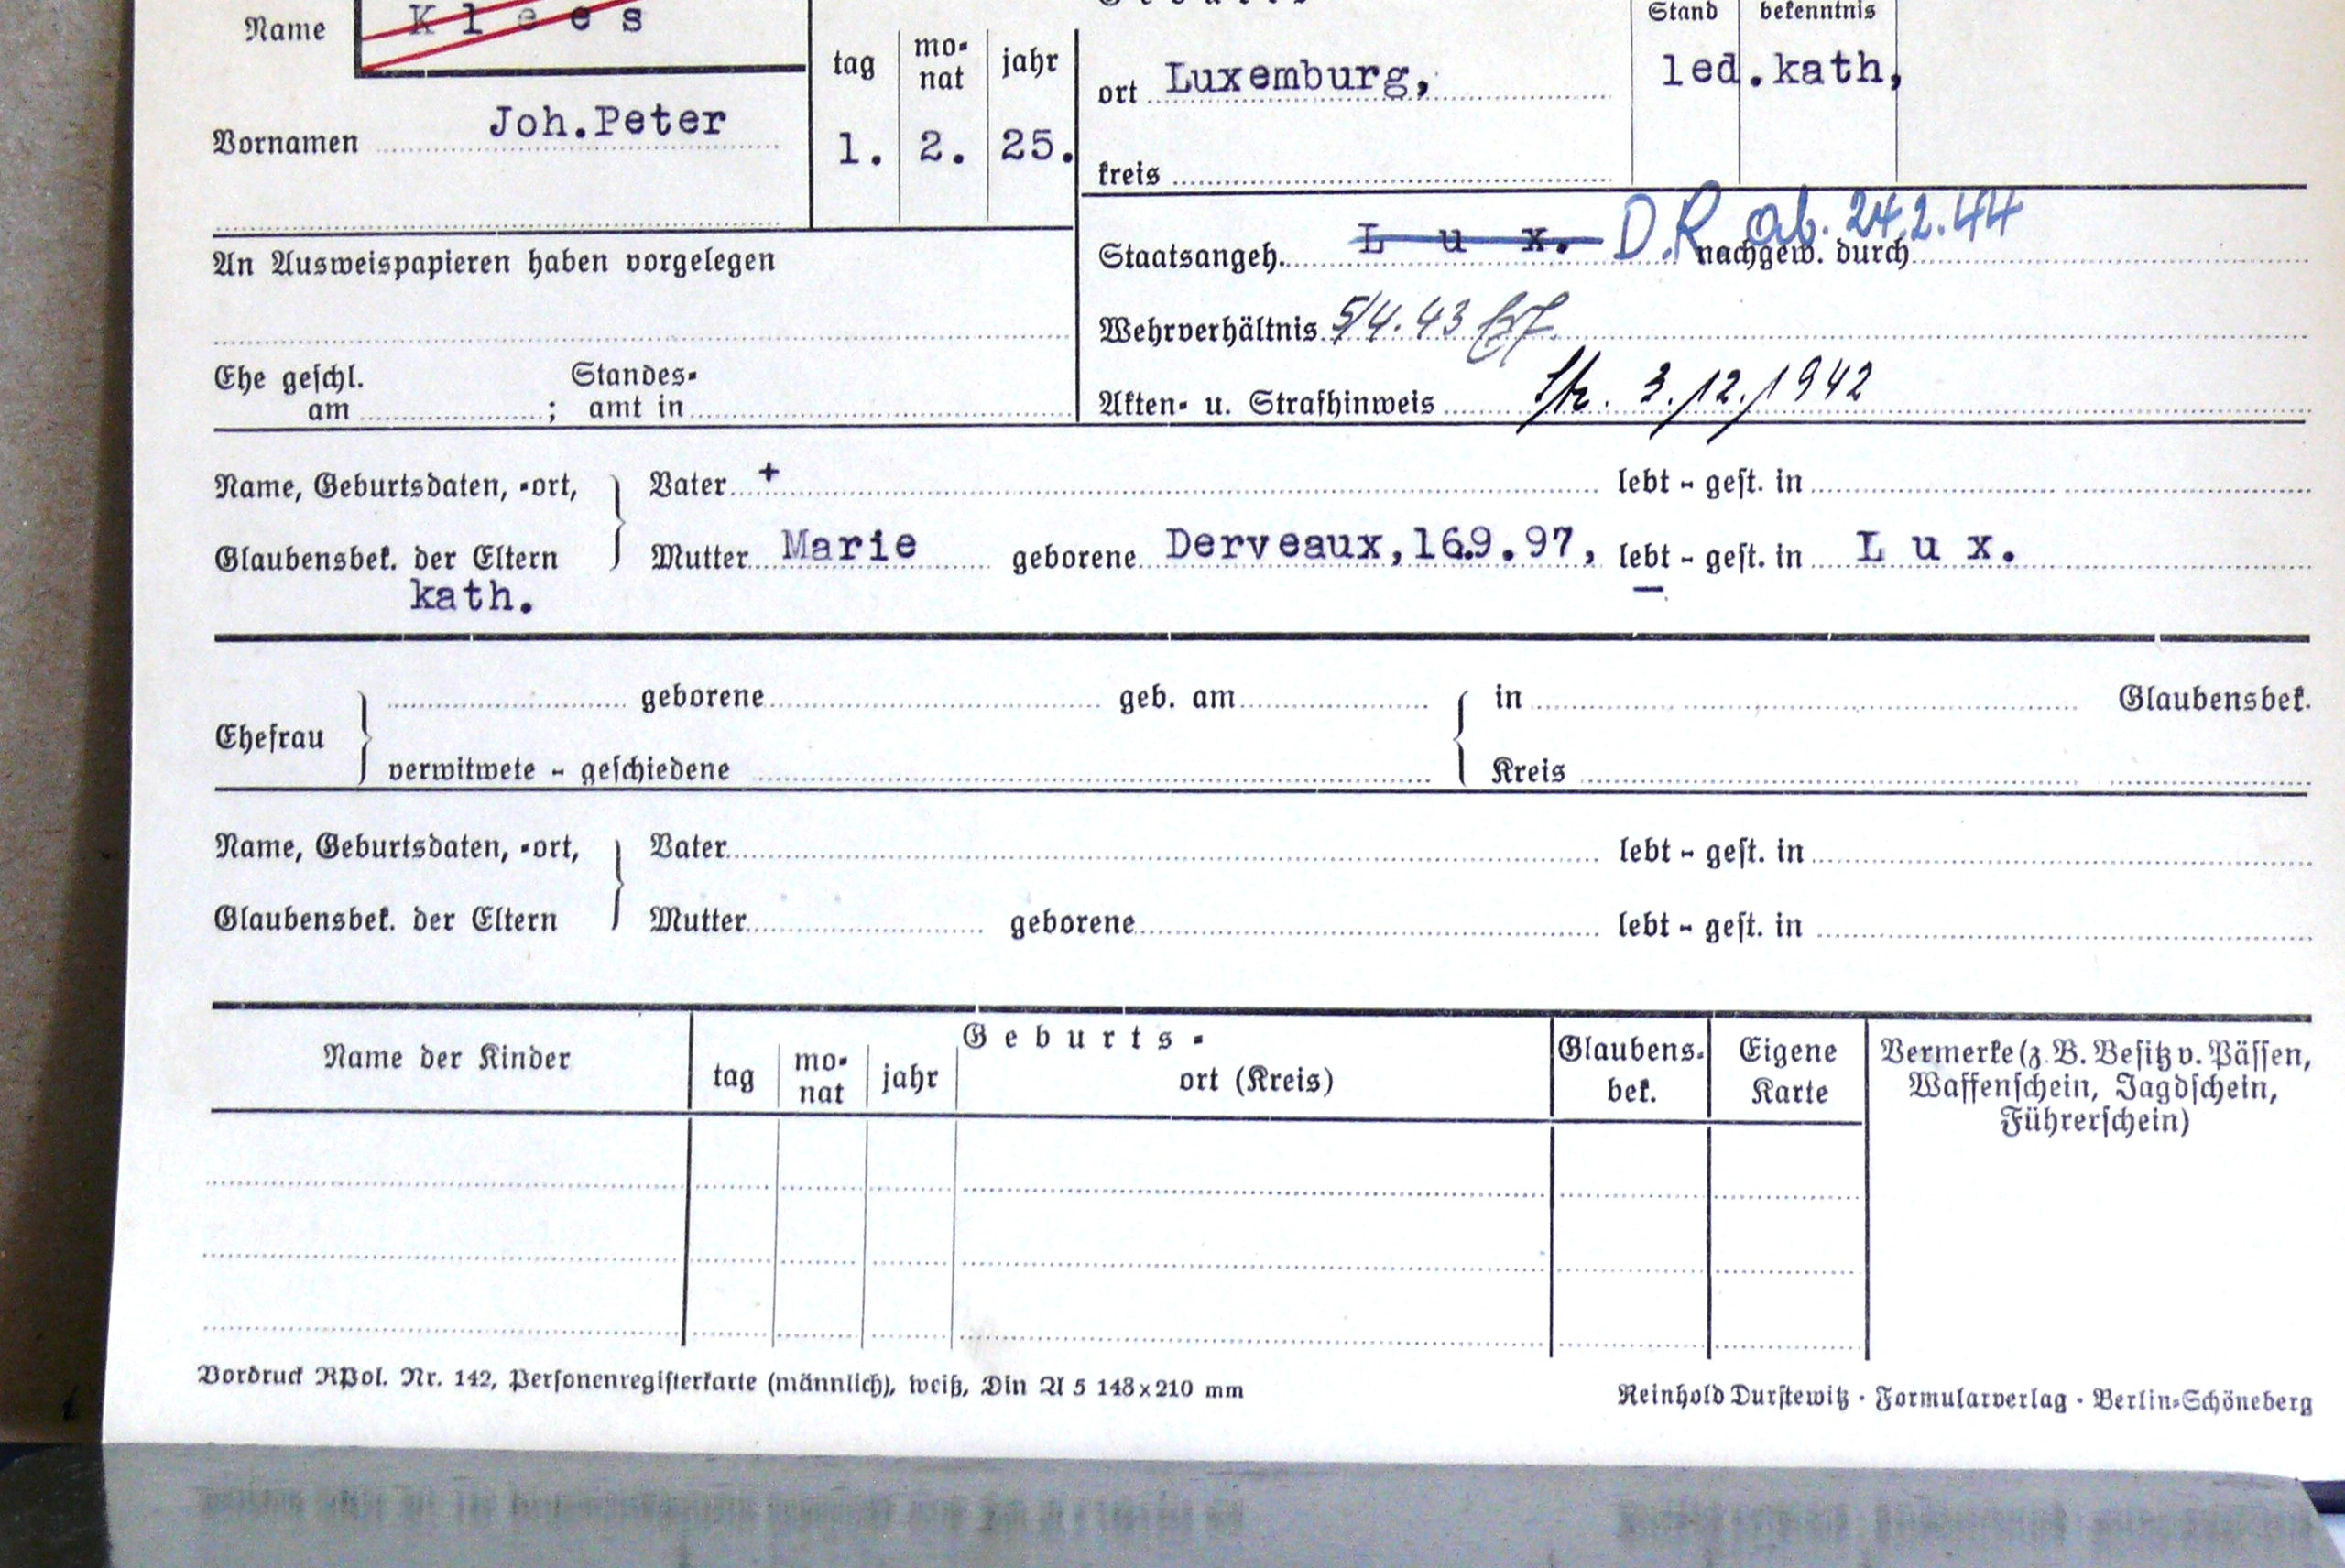 Name K l e e s
Stand bekenntnis
tag mo-nat jahr
ort Luxemburg, led.kath,
Vornamen Joh.Peter 1. 2. 25.
kreis
Staatsangeh. L u x. D.R ab. 24.2.44 nachgew. durch
An Ausweispapieren haben vorgelegen
Wehrverhältnis 5/4.43
Ehe geschl. am ; Standes-amt in
Akten- u. Strafhinweis 3./12./1942
Name, Geburtsdaten, -ort, Vater + lebt - gest. in
Glaubensbek. der Eltern Mutter Marie geborene Derveaux,16.9.97, lebt - gest. in L u x.
kath.
geborene geb. am in Glaubensbek.
Ehefrau
verwitwete - geschiedene Kreis
Name, Geburtsdaten, -ort, Vater lebt - gest. in
Glaubensbek. der Eltern Mutter geborene lebt - gest. in
G e b u r t s -
Name der Kinder tag mo-nat jahr ort (Kreis) Glaubens-bek. Eigene Karte
Vermerke (z. B. Besitz v. Pässen,
Waffenschein, Jagdschein,
Führerschein)
Vordruck RPol. Nr. 142, Personenregisterkarte (männlich), weiß, Din A 5 148x210 mm
Reinhold Durstewitz · Formularverlag · Berlin-Schöneberg